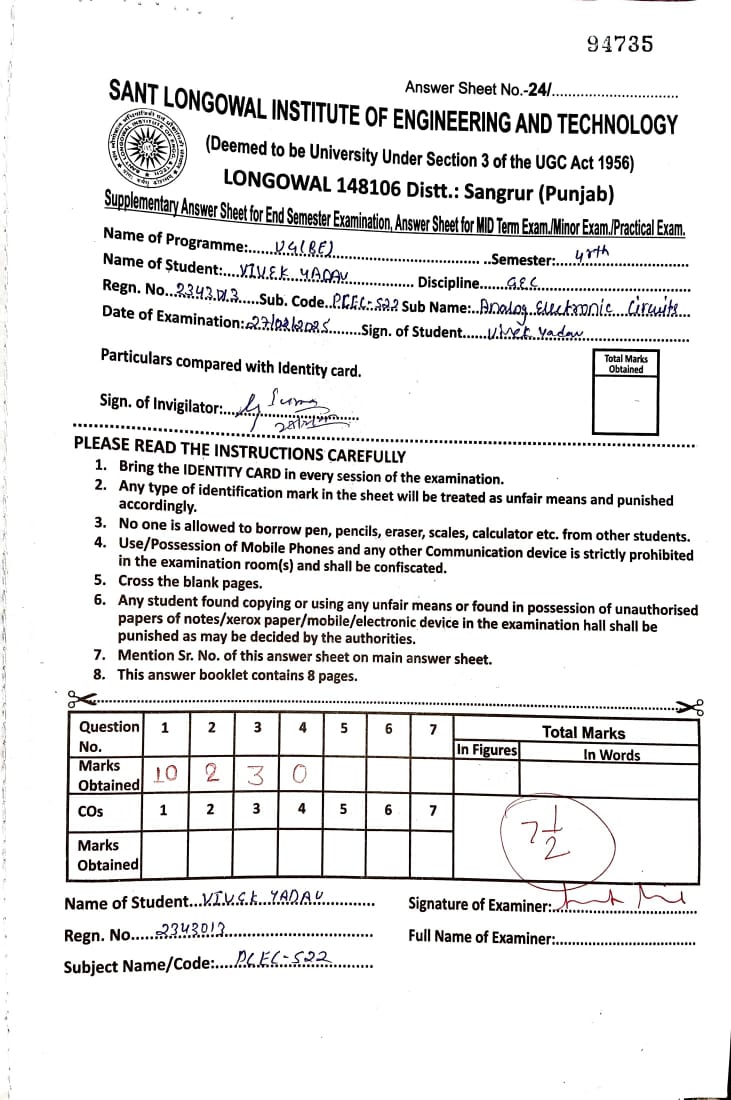 94735
Answer Sheet No.-24/..............................
SANT LONGOWAL INSTITUTE OF ENGINEERING AND TECHNOLOGY
(Deemed to be University Under Section 3 of the UGC Act 1956)
LONGOWAL 148106 Distt.: Sangrur (Punjab)
Supplementary Answer Sheet for End Semester Examination, Answer Sheet for MID Term Exam./Minor Exam./Practical Exam.
Name of Programme:......UG(BE)...................................Semester:....4rth
Name of Student:....VIVEK YADAV................ Discipline......GEC
Regn. No...2343013.....Sub. Code..PCEC-522 Sub Name:..Analog Electronic Circuits...
Date of Examination:.27/02/2025........Sign. of Student......Vivek Yadav
Particulars compared with Identity card.
Total Marks
Obtained
Sign. of Invigilator:...
PLEASE READ THE INSTRUCTIONS CAREFULLY
1. Bring the IDENTITY CARD in every session of the examination.
2. Any type of identification mark in the sheet will be treated as unfair means and punished
accordingly.
3. No one is allowed to borrow pen, pencils, eraser, scales, calculator etc. from other students.
4. Use/Possession of Mobile Phones and any other Communication device is strictly prohibited
in the examination room(s) and shall be confiscated.
5. Cross the blank pages.
6. Any student found copying or using any unfair means or found in possession of unauthorised
papers of notes/xerox paper/mobile/electronic device in the examination hall shall be
punished as may be decided by the authorities.
7. Mention Sr. No. of this answer sheet on main answer sheet.
8. This answer booklet contains 8 pages.
Question No. 1 2 3 4 5 6 7 Total Marks
In Figures In Words
Marks Obtained 10 2 3 0
COs 1 2 3 4 5 6 7
7 1/2
Marks Obtained
Name of Student...VIVEK YADAV...........
Signature of Examiner:...
Regn. No.....2343013
Full Name of Examiner:...............................
Subject Name/Code:....PCEC-522...........